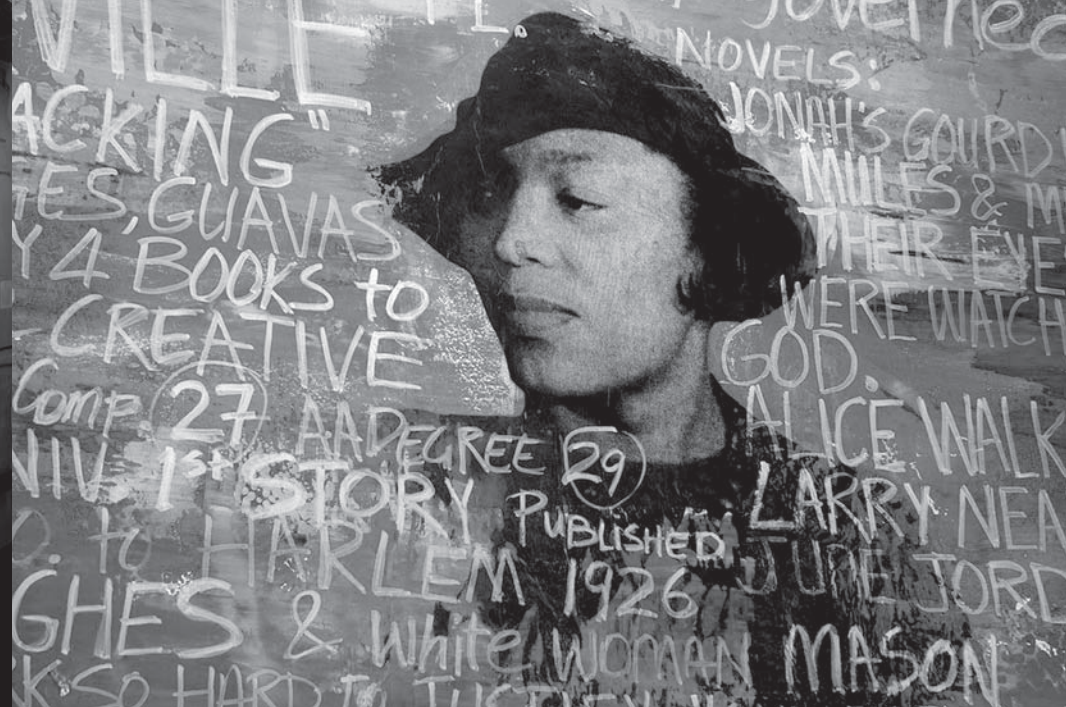 VILLE
ACKING"
GES, GUAVAS
Y 4 BOOKS to
CREATIVE
Comp. 27 AA DEGREE 29
NIV. 1st STORY PUBLISHED
to HARLEM 1926
GHES & White WOMAN MASON
K SO HARD To
NOVELS:
JONAH'S GOURD
MULES & M
THEIR EYE
WERE WATCH
GOD.
ALICE WALK
LARRY NEA
JUNE JORD